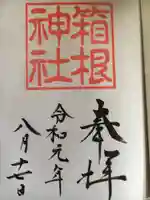 箱根
神社
奉拝
令和元年
八月十七日